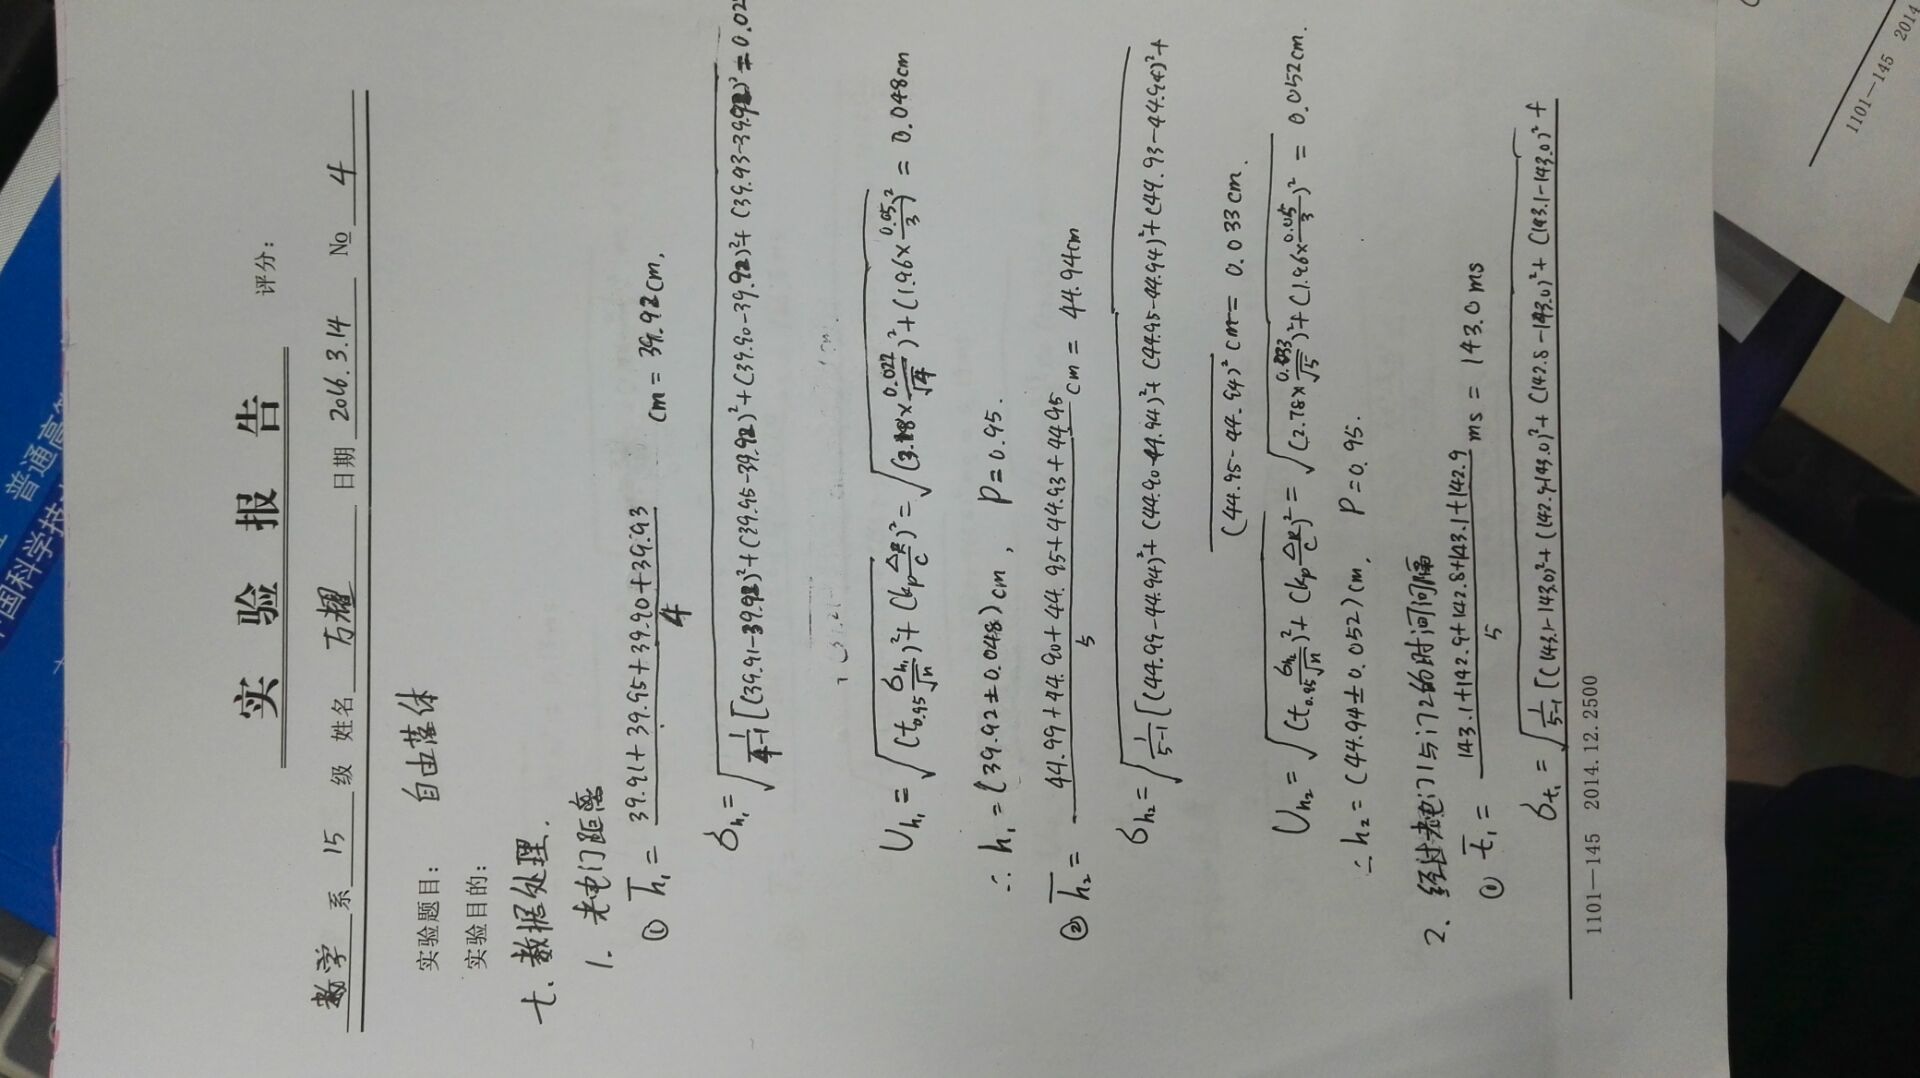 实 验 报 告
评分:
数学 系 15 级 姓名 方耀 日期 2016.3.14 № 4
实验题目: 自由落体
实验目的:
七、数据处理.
1. 光电门距离
① h̅₁ = (39.91+39.95+39.90+39.93)/4 cm = 39.92cm,
σh₁ = √(1/(4-1) [(39.91-39.92)²+(39.95-39.92)²+(39.90-39.92)²+(39.93-39.92)² = 0.02
Uh₁ = √((t₀.₉₅ σh₁/√n)²+(kp ΔB/C)²) = √((3.18×0.022/√4)²+(1.96×0.05/3)²) = 0.048cm
∴ h₁ = (39.92±0.048)cm, P=0.95.
② h̅₂ = (44.99+44.90+44.95+44.93+44.95)/5 cm = 44.94cm
σh₂ = √(1/(5-1) [(44.99-44.94)²+(44.90-44.94)²+(44.95-44.94)²+(44.93-44.94)²+
(44.95-44.94)² cm = 0.033cm.
Uh₂ = √((t₀.₉₅ σh₂/√n)²+(kp ΔB/C)²) = √((2.78×0.033/√5)²+(1.96×0.05/3)²) = 0.052cm.
∴ h₂ = (44.94±0.052)cm, P=0.95.
2、经过光电门1与门2的时间间隔
① t̅₁ = (143.1+142.9+142.8+143.1+142.9)/5 ms = 143.0ms
σt₁ = √(1/(5-1) [(143.1-143.0)²+(142.9-143.0)²+(142.8-143.0)²+(143.1-143.0)²+
1101—145 2014.12.2500
1101—145 2014
普通高
国科学技